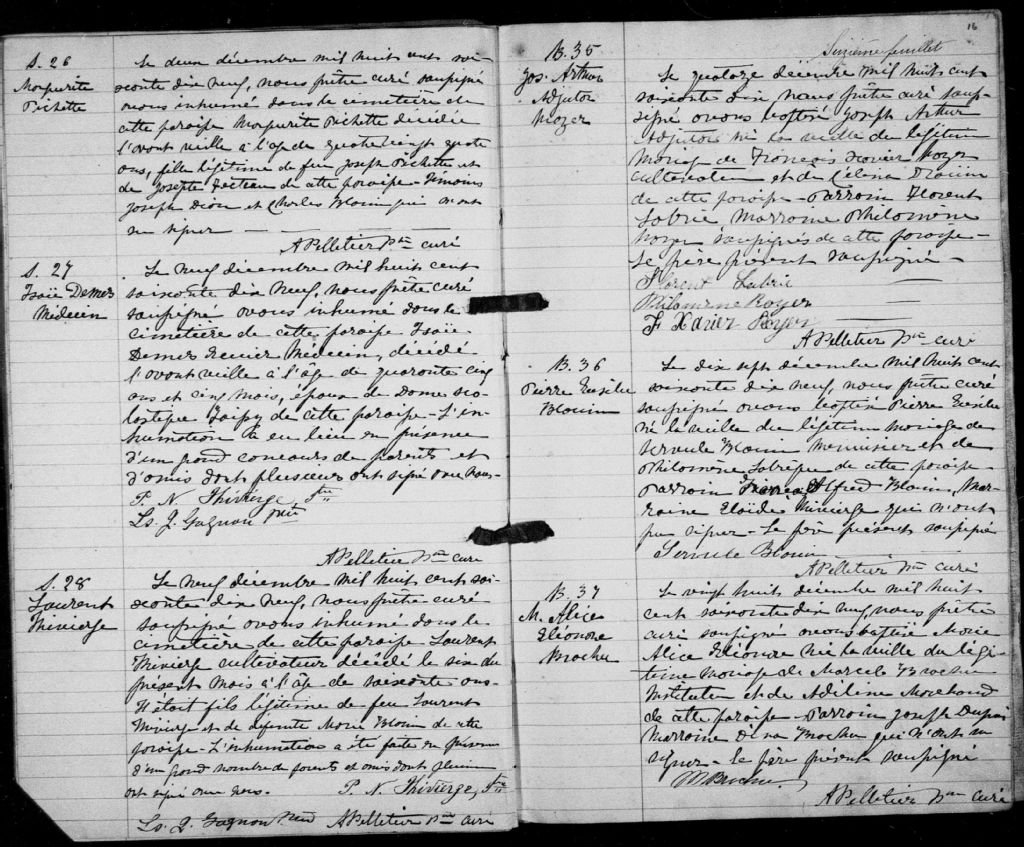 S. 26
Marguerite
Pichette
Le deux décembre mil huit cent soi-
xante dix neuf, nous prêtre curé soussigné
avons inhumé dans le cimetière de
cette paroisse Marguerite Pichette décédée
l'avant veille à l'âge de quatre vingt quatre
ans, fille légitime de feu Joseph Pichette et
de Josepte Fecteau de cette paroisse - Témoins
Joseph Dion et Charles Blouin qui n'ont
su signer
A Pelletier Ptre curé
S. 27
Isaïe Demers
Médecin
Le neuf décembre mil huit cent
soixante dix neuf, nous prêtre curé
soussigné avons inhumé dans le
cimetière de cette paroisse Isaïe
Demers Ecuier Médecin, décédé
l'avant veille à l'âge de quarante cinq
ans et cinq mois, époux de Dame Sco-
lastique de cette paroisse - L'in-
humation a eu lieu en présence
d'un grand concours de parents et
d'amis dont plusieurs ont signé avec nous -
P. N. Thivierge, Ptre
Ls. J. Gagnon Ptre
A Pelletier Ptre curé
S. 28
Laurent
Thivierge
Le neuf décembre mil huit cent soi-
xante dix neuf, nous prêtre curé
soussigné avons inhumé dans le
cimetière de cette paroisse Laurent
Thivierge cultivateur décédé le six du
présent mois à l'âge de soixante ans -
Il était fils légitime de feu Laurent
Thivierge et de défunte Marie Blouin de cette
paroisse - L'inhumation a été faite en présence
d'un grand nombre de parents et amis dont plusieurs
ont signé avec nous. P. N. Thivierge, Ptre
Ls. J. Gagnon Ptre A Pelletier Ptre curé
16
Seizième feuillet
B. 35
Jos. Arthur
Adjutor
Royer
Le quatorze décembre mil huit cent
soixante dix nous prêtre curé sous-
signé avons baptisé Joseph Arthur
Adjutor né la veille du légitime
mariage de François Xavier Royer
cultivateur et de Célina Drouin
de cette paroisse - Parrain Florent
Labrie Marraine Philomène
Royer soussignés de cette paroisse -
Le père présent soussigné -
Florent Labrie
Philomène Royer
F Xavier Royer
A Pelletier Ptre curé
B. 36
Pierre Eusèbe
Blouin
Le dix sept décembre mil huit cent
soixante dix neuf, nous prêtre curé
soussigné avons baptisé Pierre Eusèbe
né la veille du légitime mariage de
Servule Blouin Menuisier et de
Philomène Labrèque de cette paroisse -
Parrain Alfred Blouin, Mar-
raine Eloïdie Thivierge qui n'ont
pu signer - Le père présent soussigné
Servule Blouin
A Pelletier Ptre curé
B. 37
M. Alice
Eléonore
Brochu
Le vingt huit décembre mil huit
cent soixante dix neuf, nous prêtre
curé soussigné avons baptisé Marie
Alice Eléonore née la veille du légi-
time mariage de Marcel Brochu
Instituteur et de Adéline Marchand
de cette paroisse - Parrain Joseph Dupuis
Marraine Brochu qui n'ont su
signer - le père présent soussigné
M Brochu
A Pelletier Ptre curé